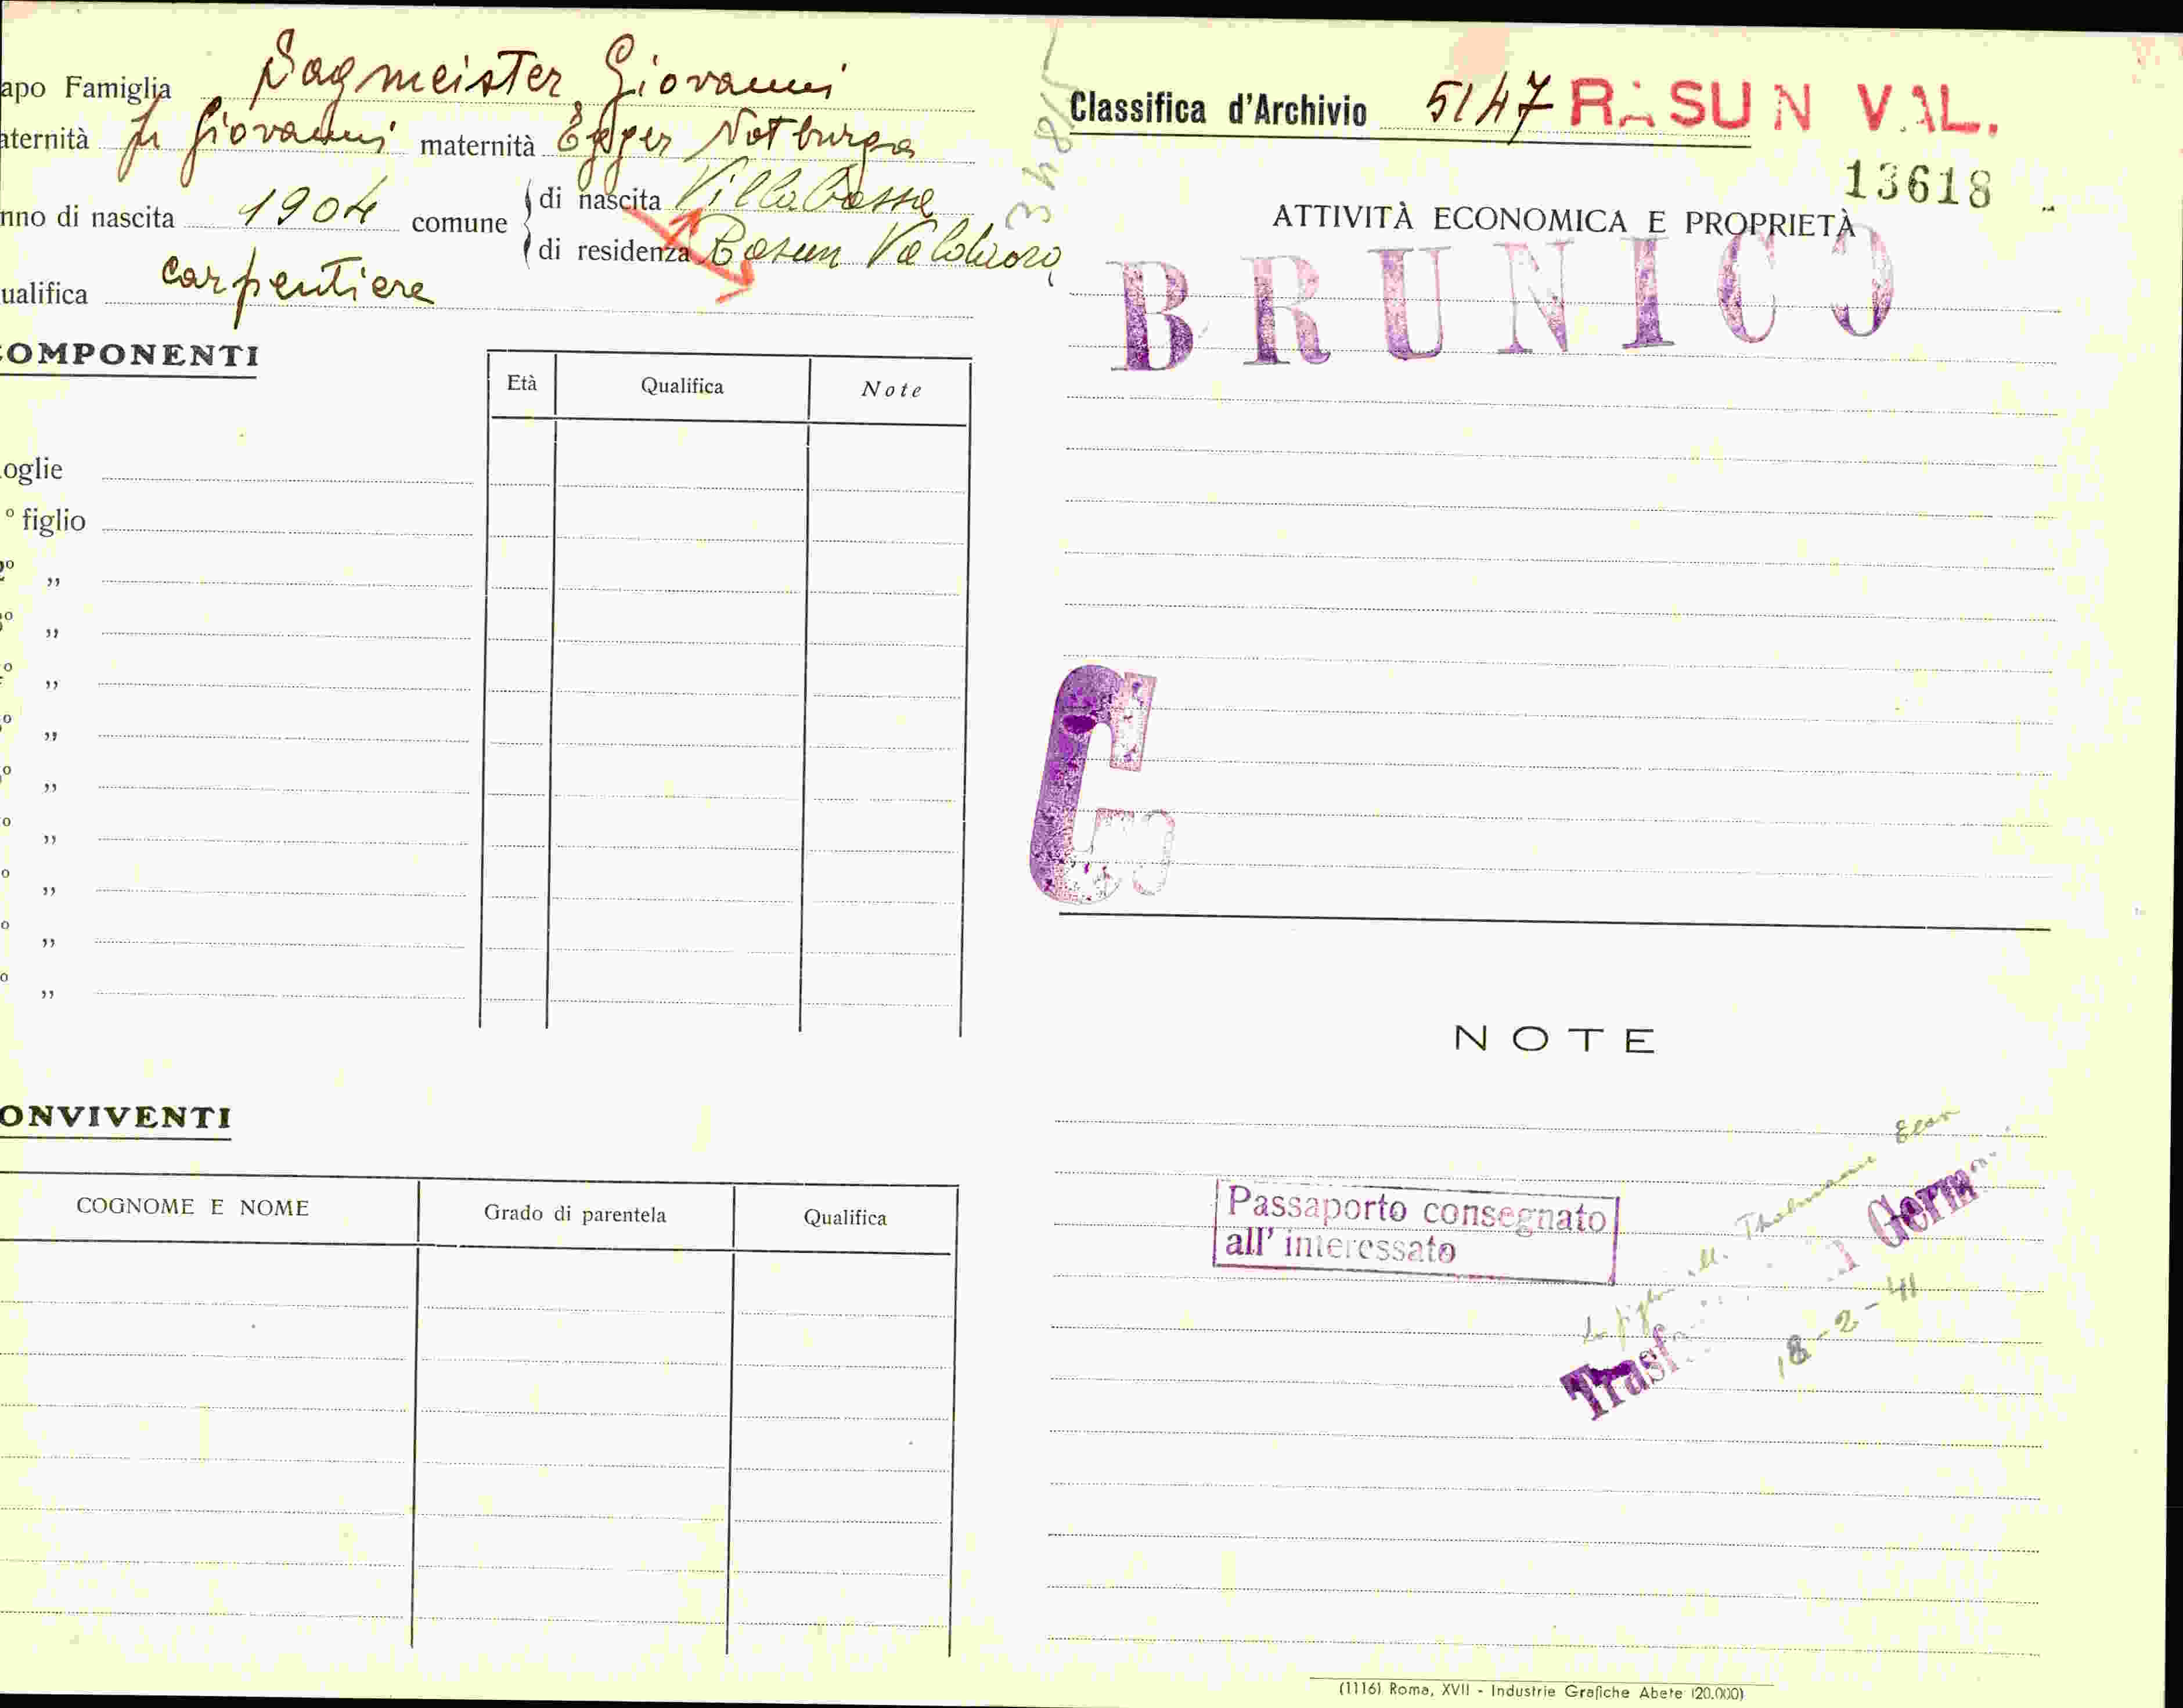 apo Famiglia Sagmeister Giovanni
aternità fu Giovanni maternità Egger Notburga
nno di nascita 1904 comune
di nascita Villabassa
di residenza Rasun Valdaora
ualifica carpentiere
OMPONENTI
Età Qualifica Note
oglie
° figlio
2° ”
° ”
° ”
° ”
° ”
° ”
° ”
° ”
° ”
ONVIVENTI
COGNOME E NOME Grado di parentela Qualifica
Classifica d'Archivio 5147 RASUN VAL.
13618
ATTIVITÀ ECONOMICA E PROPRIETÀ
BRUNICO
C
NOTE
Passaporto consegnato
all' interessato
Trasf Germ
18-2-41
(1116) Roma, XVII - Industrie Grafiche Abete (20.000)